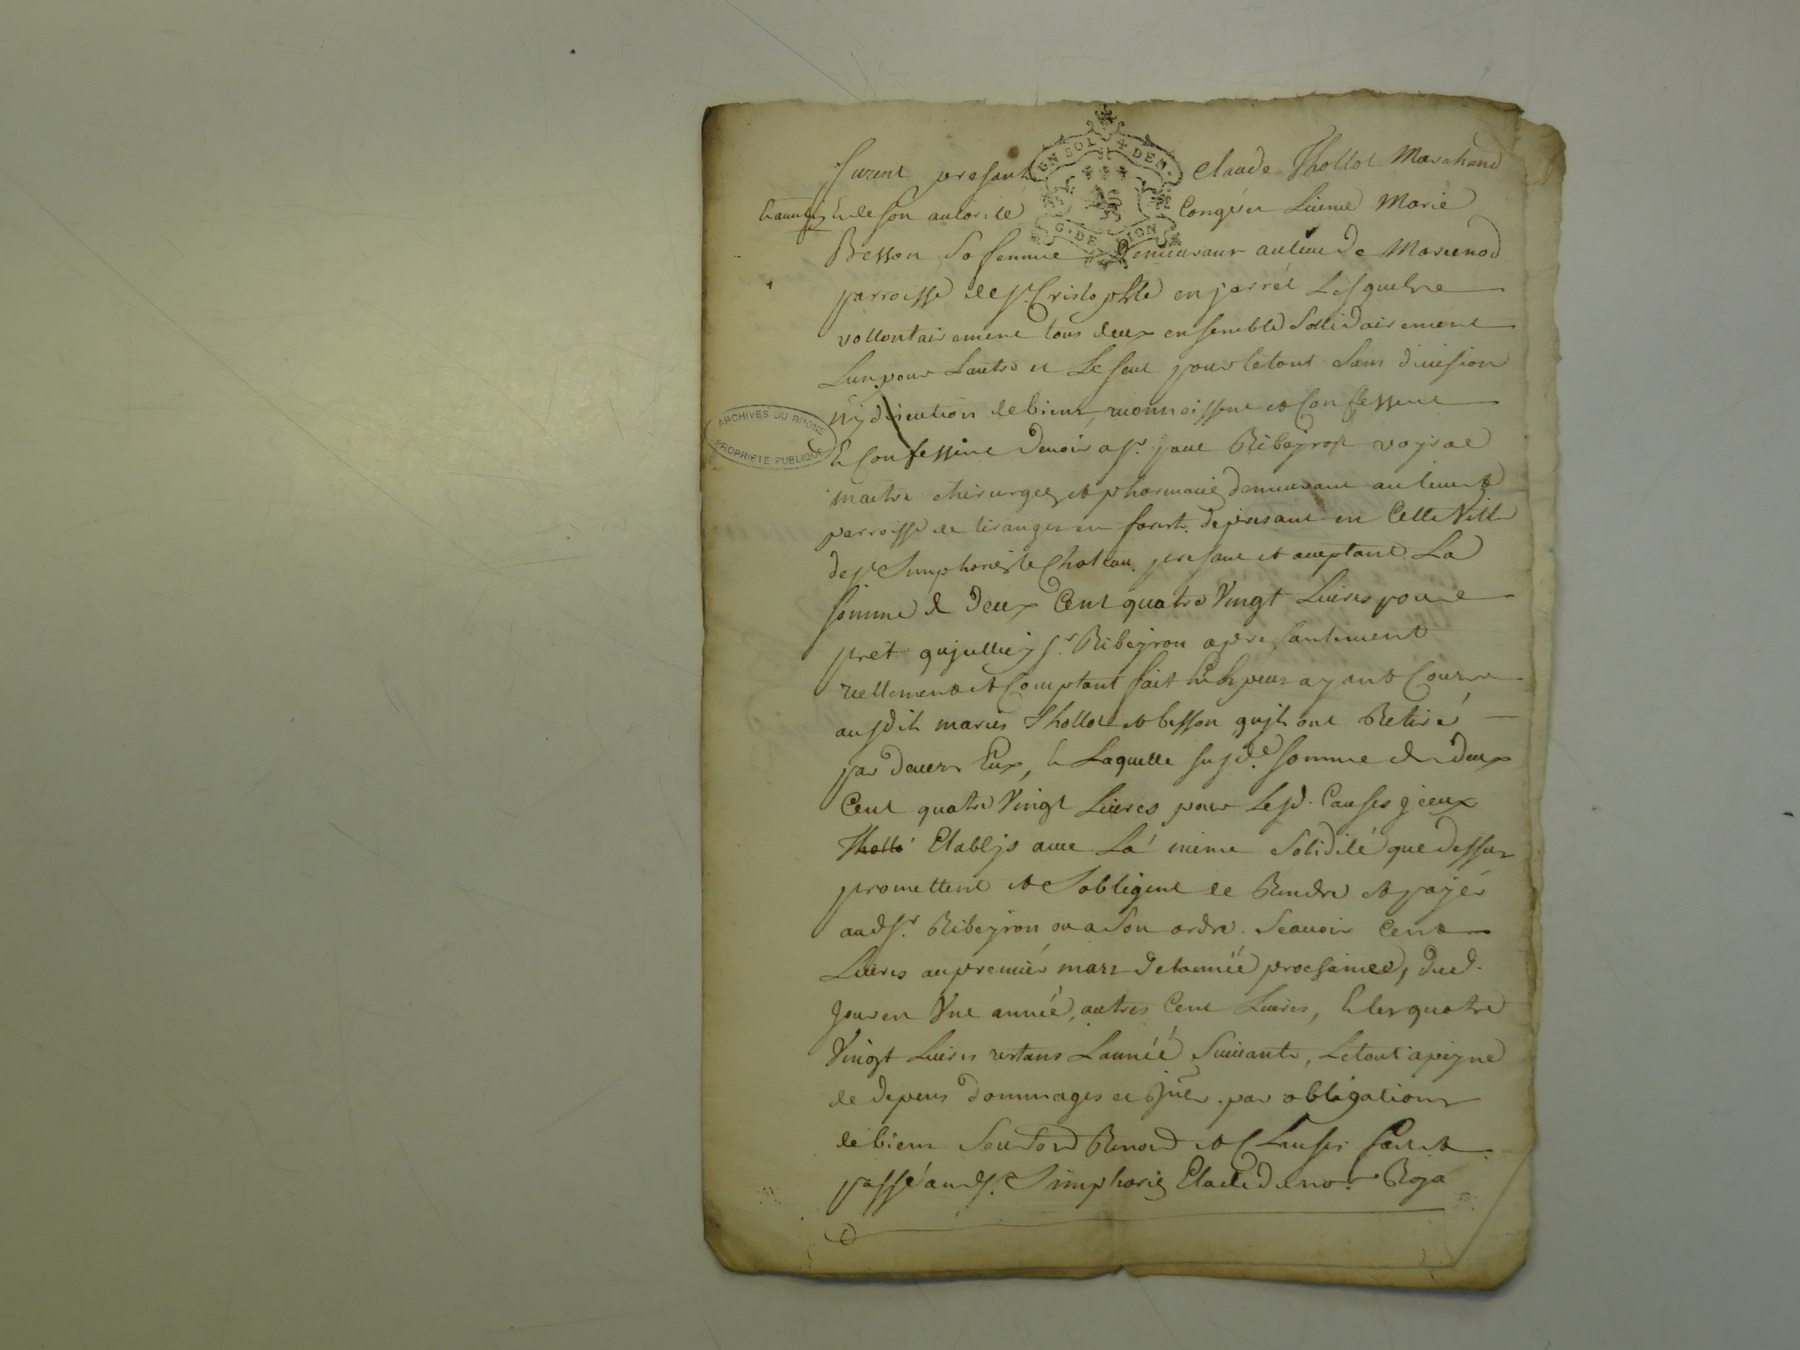 UN SOL 4 DEN.
G. DE LION
ARCHIVES DU RHONE
PROPRIÉTÉ PUBLIQUE
furent presant Claude Thollot Marchand
& de son autorité Congér Marie
Besson Sa femme demeurant au lieu de Morenod
parroisse de st. Cristophle en jarret Lesquels
vollontairement tous deux ensemble Sollidairement
Lun pour Lautre et Le Seul pour le tout Sans division
ny de biens, reconnoissent et Confessent
& Confessent devoir a sr. Ribeyron
maitre chirurgien et pharmacien demeurant au lieu &
parroisse de tiranges en forest. de presant en Cette Ville
de st. Simphorien le Chateau. presant et aceptant La
somme de deux Cent quatre Vingt Livres pour
prét qujelluy sr. Ribeyron a presantement
reellement et Comptant fait en Especes ayant Cours
ausdits mariés Thollot et besson qujls ont Retiré
par devers Eux, & Laquelle susde. somme de deux
Cent quatre Vingt Livres pour Lesd. Causes jceux
Thollo Etablys avec La méme Solidité que dessus
promettent et Sobligent de Rendre et payér
aud sr. Ribeyron ou a Son ordre. Scavoir Cent
Livres au premiér mars de lannéé prochaine, dud.
Jour en Une annéé, autres Cent Livres, & les quatre
Vingt Livres restans Lannéé Suivante, Le tout a peyne
de depens dommages et par obligations
de biens et Clauses fait &
passé aud st. Simphorien